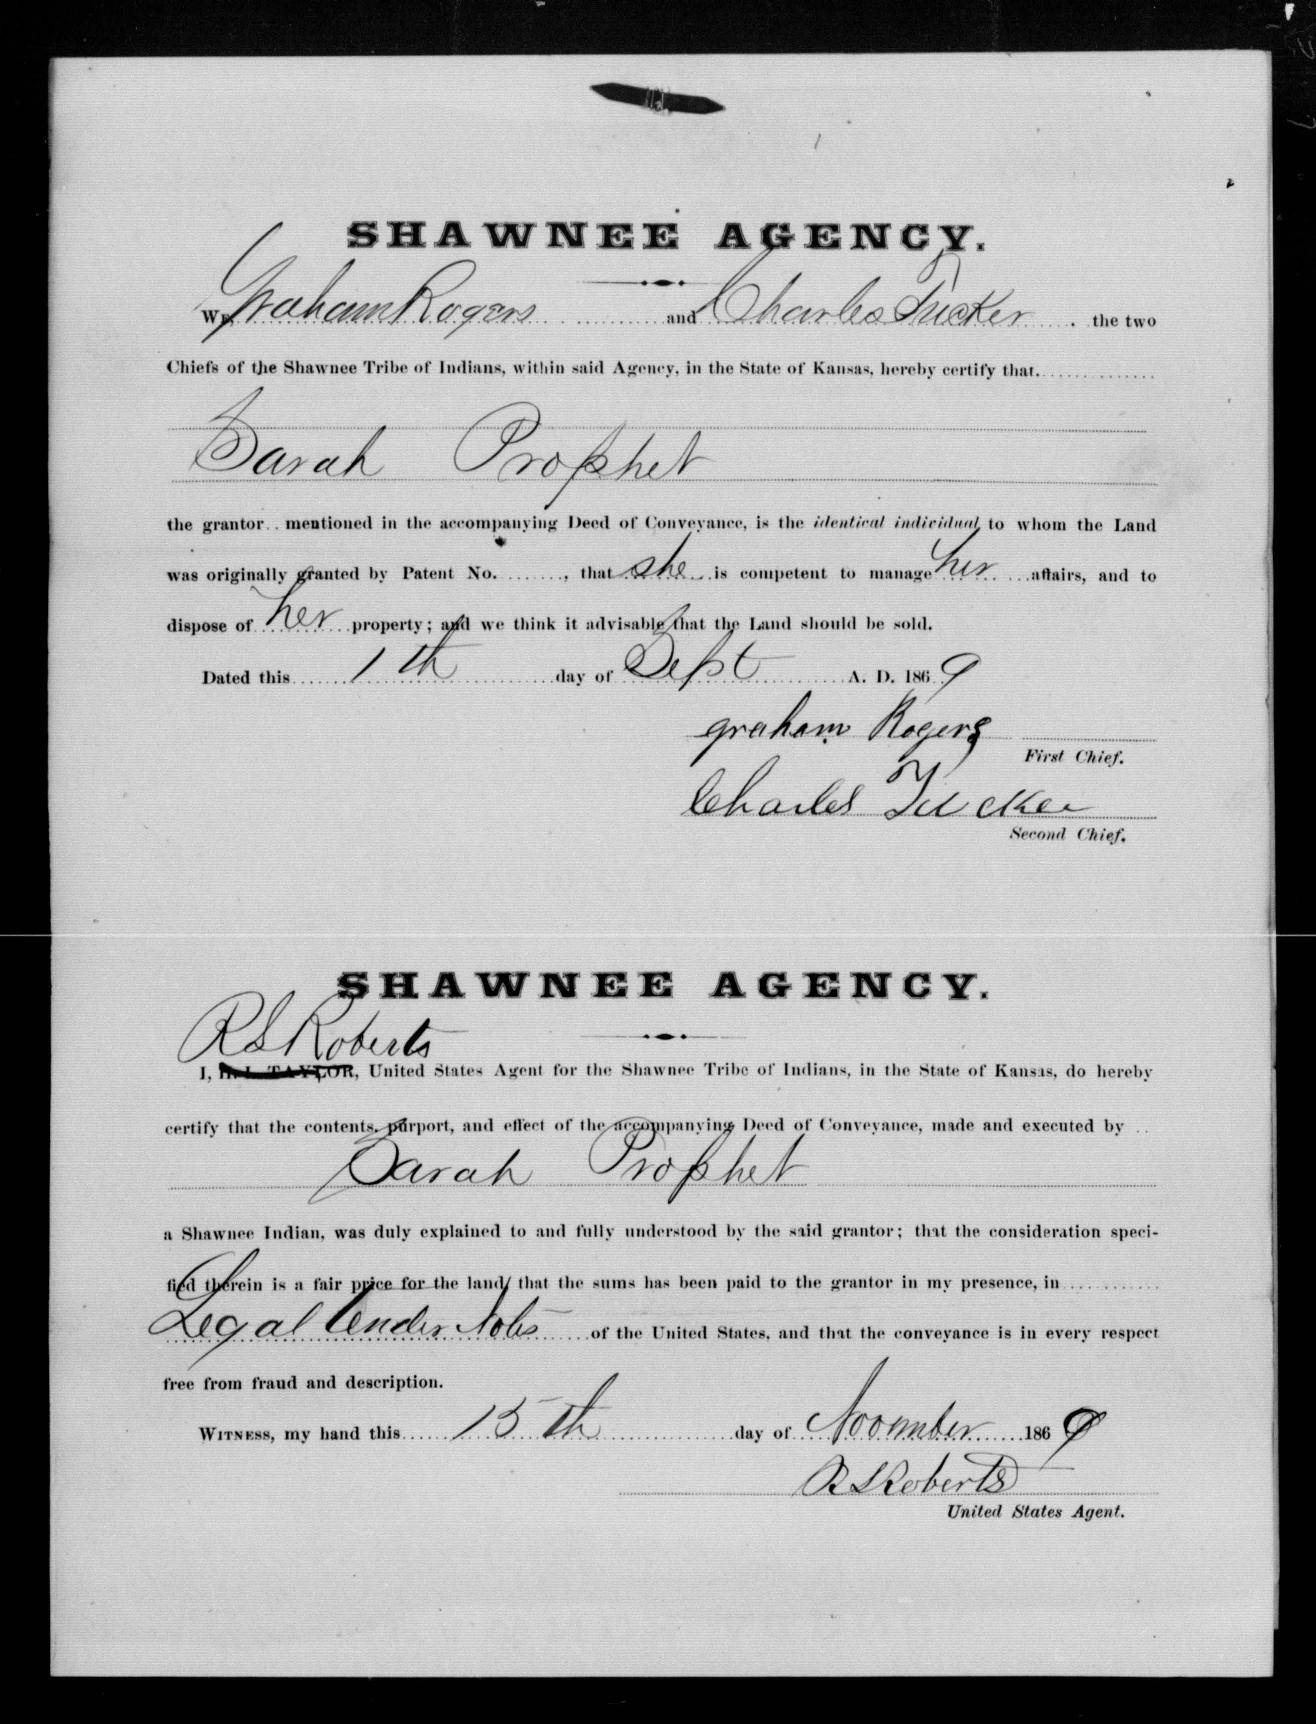 SHAWNEE AGENCY.
We, Graham Rogers and Charles Tucker the two
Chiefs of the Shawnee Tribe of Indians, within said Agency, in the State of Kansas, hereby certify that
Sarah Prophet
the grantor mentioned in the accompanying Deed of Conveyance, is the identical individual to whom the Land
was originally granted by Patent No. , that she is competent to manage her affairs, and to
dispose of her property; and we think it advisable that the Land should be sold.
Dated this 1th day of Sept A. D. 1869
graham Rogers
First Chief.
Charles Tucker
Second Chief.
SHAWNEE AGENCY.
R S Roberts
I, H. L. TAYLOR, United States Agent for the Shawnee Tribe of Indians, in the State of Kansas, do hereby
certify that the contents, purport, and effect of the accompanying Deed of Conveyance, made and executed by
Sarah Prophet
a Shawnee Indian, was duly explained to and fully understood by the said grantor; that the consideration speci-
fied therein is a fair price for the land, that the sums has been paid to the grantor in my presence, in
Legal tender Notes of the United States, and that the conveyance is in every respect
free from fraud and description.
WITNESS, my hand this 15th day of November 1869
R S Roberts
United States Agent.